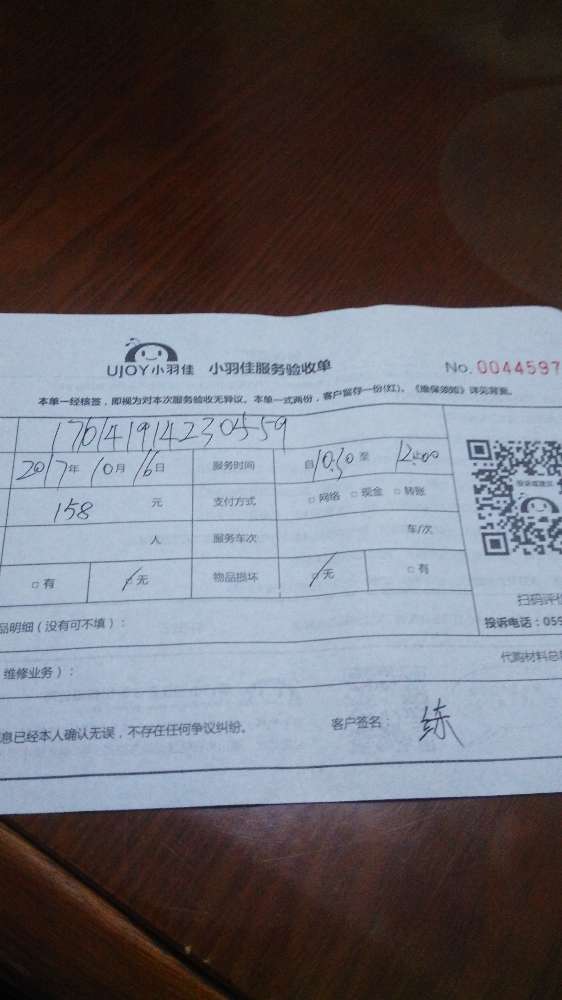 UJOY小羽佳 小羽佳服务验收单 No. 0044597
本单一经核签，即视为对本次服务验收无异议。本单一式两份，客户留存一份(红)。《维保须知》详见背面。
17041914230559
2017年10月16日 服务时间 自10:30至12:00
158元 支付方式 □网络 □现金 □转账
人 服务车次 车/次
□有 □无 物品损坏 □无 □有
扫码评价
品明细（没有可不填）： 投诉电话：059
维修业务）： 代购材料总
息已经本人确认无误，不存在任何争议纠纷。 客户签名：练